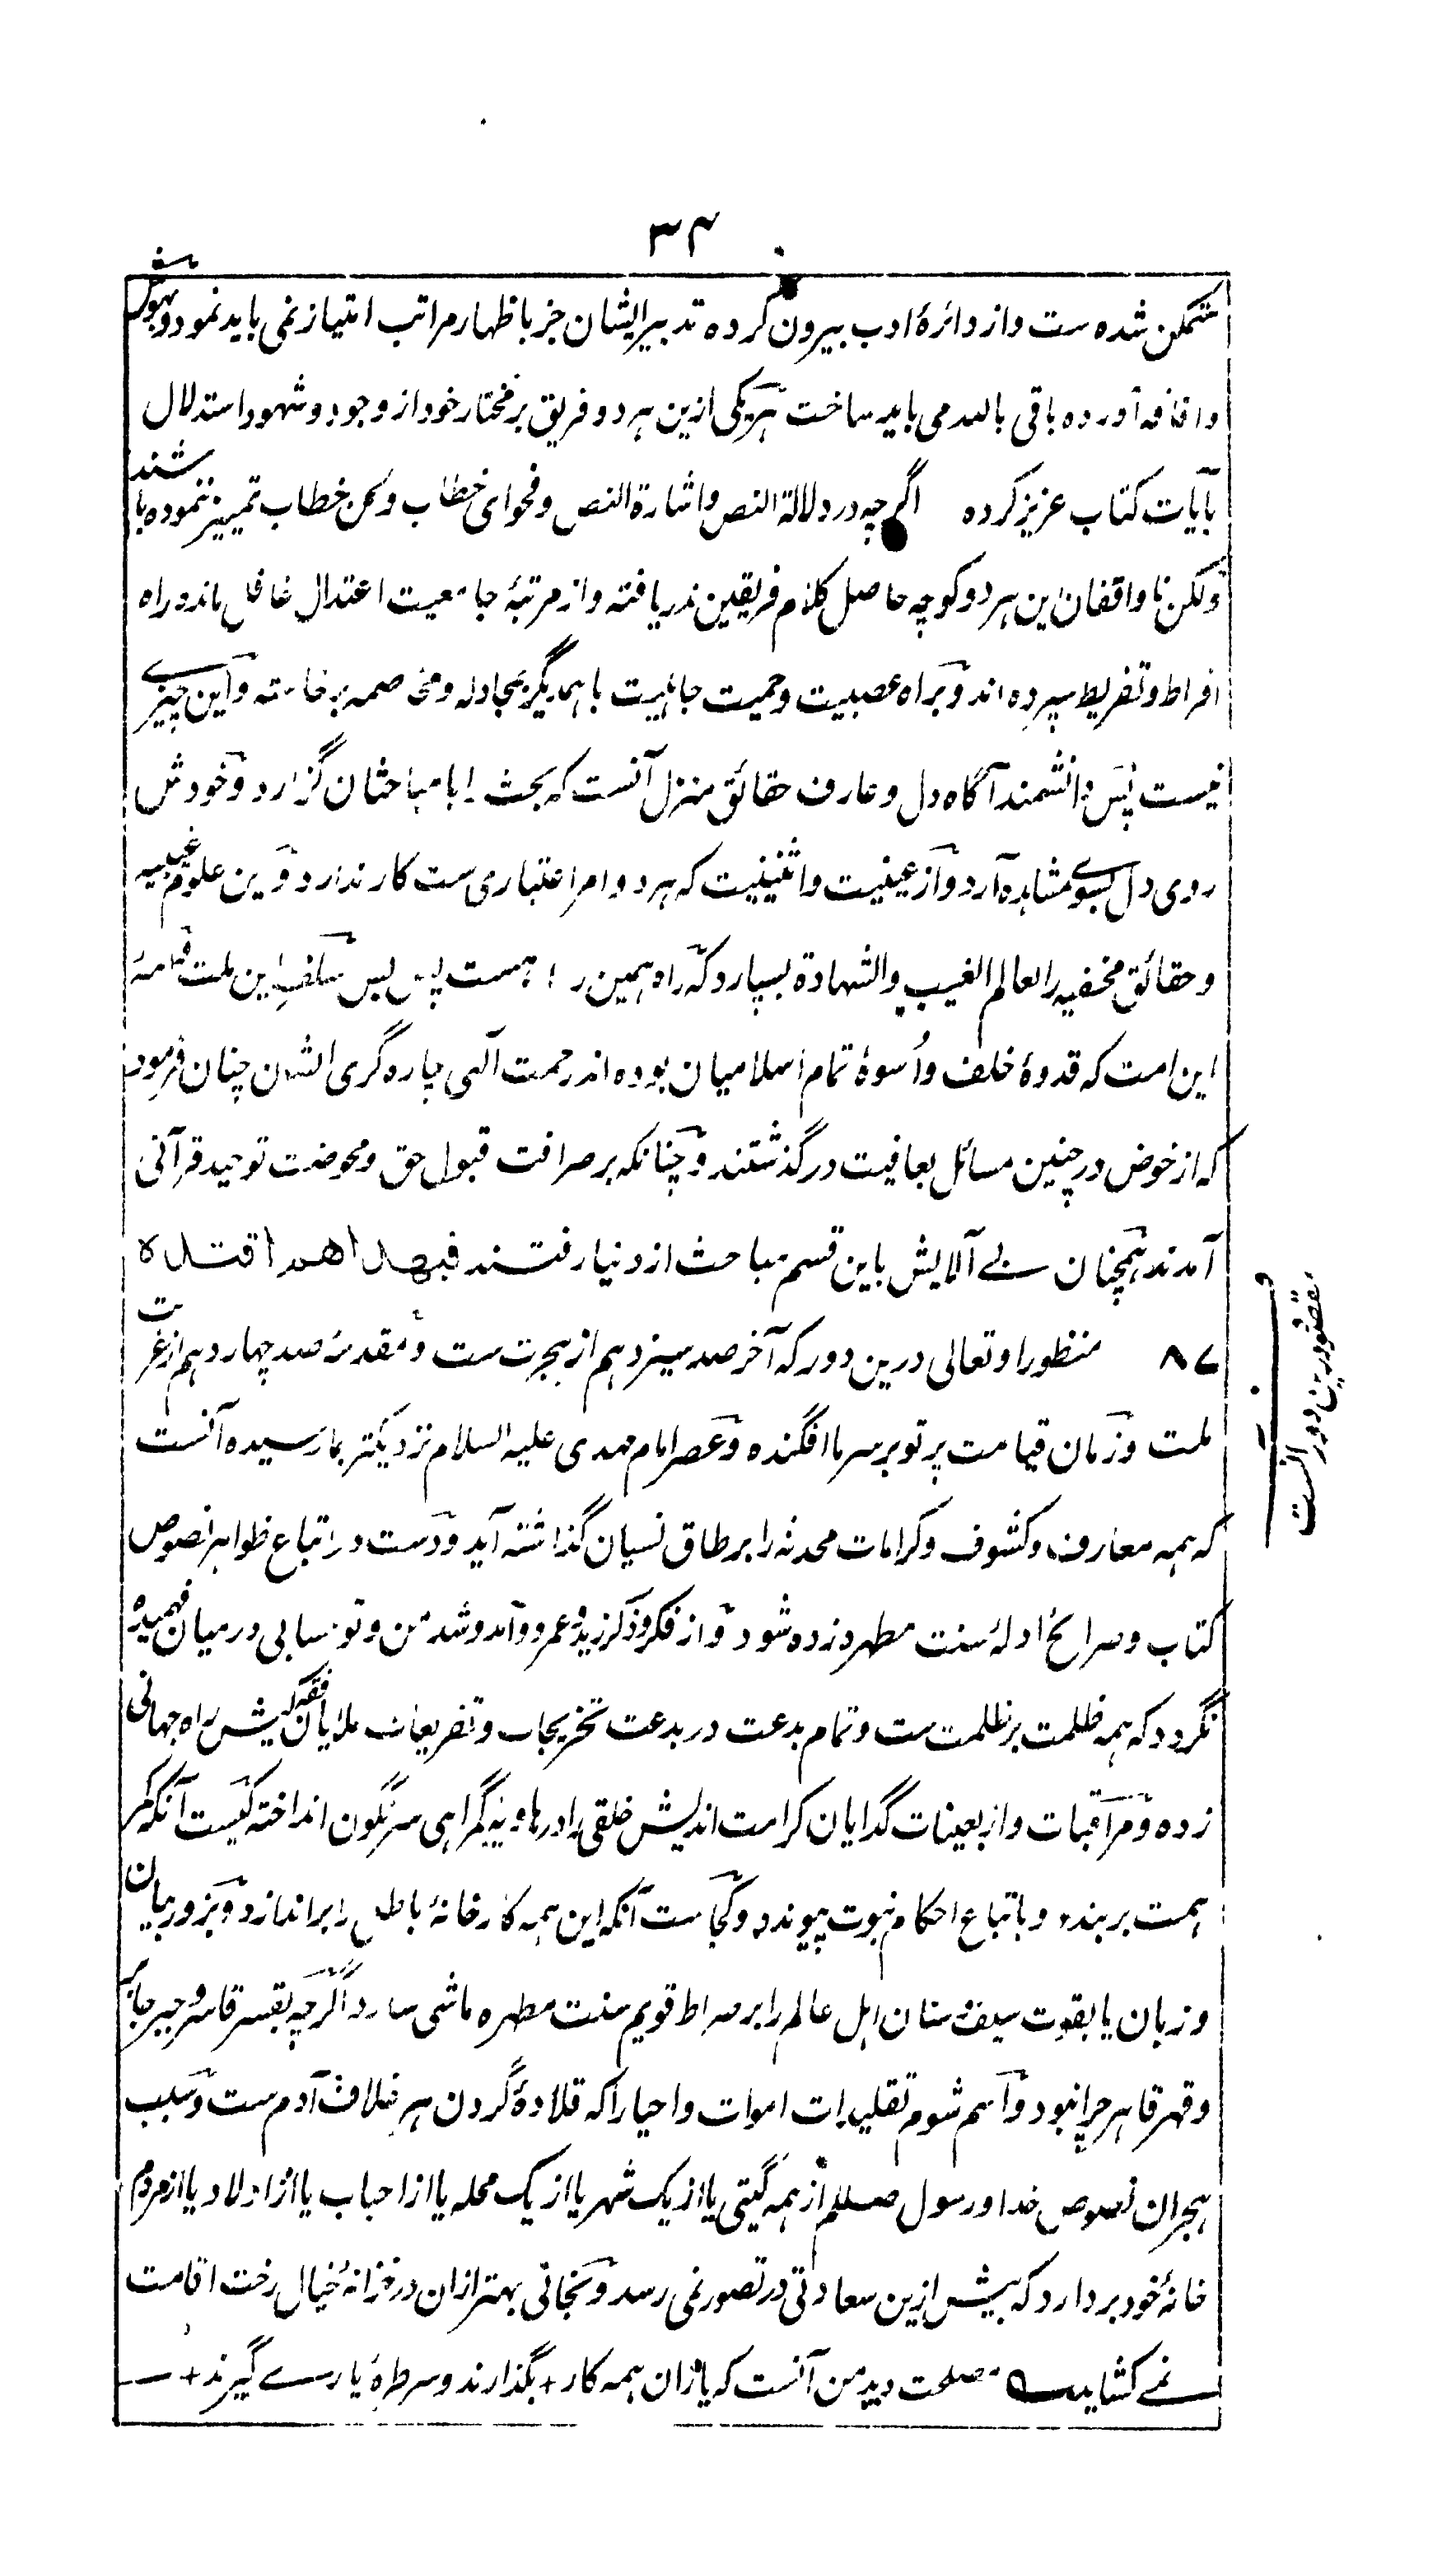 ۳۴
متمکن شده ست و از دائرۂ ادب بیرون کرده تدبیر ایشان جز باظهار مراتب امتیاز نمی باید نمود و بهوش
و افاقه آورده باقی بالله می باید ساخت هر یکی ازین هر دو فریق بر مختار خود از وجود و شهود استدلال
بآیات کتاب عزیز کرده اگرچه در دلالة النص و اشارة النص و فحوای خطاب و لحن خطاب تمییز ننموده باشند
ولکن ناواقفان این هر دو کوچه حاصل کلام فریقین ندریافته و از مرتبۂ جامعیت اعتدال غافل مانده راه
افراط و تفریط سپرده اند و براه عصبیت و حمیت جاهلیت با همدیگر بمجادله و مخاصمه برخاسته و این چیزے
نیست پس دانشمند آگاه دل و عارف حقائق منزل آنست که بحث را با مباحثان گزارد و خودش
روی دل بسوے مشاهده آرد و از عینیت و اثنینیت که هر دو امر اعتباری ست کار ندارد و این علوم غیبیه
و حقائق مخفیه را بعالم الغیب والشهادة بسپارد که راه همین ست پس سلف این ملت و ائمۂ
این امت که قدوۂ خلف و اُسوۂ تمام اسلامیان بوده اند رحمت آلهی چاره گری ایشان چنان فرمود
که از خوض در چنین مسائل بعافیت درگذشتند و چنانکه بر صرافت قبول حق و محوضت توحید قرآنی
آمدند همچنان بے آلایش باین قسم مباحث از دنیا رفتند فبهداهم اقتده
۸۷ منظور او تعالی درین دور که آخر صد سیزدهم از هجرت ست و مقدمۂ صد چهاردهم از غربت
ملت و زمان قیامت پرتو بر سر ما افگنده و عصر امام مهدی علیه السلام نزدیکتر بما رسیده آنست
که همه معارف و کشوف و کرامات محدثه را بر طاق نسیان گذاشته آید و دست در اتباع ظواهر نصوص
کتاب و صرایح ادلۂ سنت مطهره زده شود و از فکر و ذکر زید و عمرو و آمد و شد من و تو حسابی درمیان فهمیده
نگردد که همه ظلمت بر ظلمت ست و تمام بدعت در بدعت تخریجات و تفریعات ملایان فقه کیش راه جهانی
زده و مراقبات و اربعینات گدایان کرامت اندیش خلقی را در هاویۂ گمراهی سرنگون انداخته کیست آنکه کمر
همت بر بندد و باتباع احکام نبوت پیوندد و کجاست آنکه این همه کارخانۂ باطل را بر اندازد و بزور بیان
و زبان یا بقوت سیف و سنان اهل عالم را بر صراط قویم سنت مطهره ماشی سازد اگرچه بقسر قاسر و جبر جابر
و قهر قاهر چرا نبود و اسم شوم تقلیدات اموات و احیا را که قلادۂ گردن هر خلاف آدم ست و سبب
هجران نصوص خدا و رسول صلعم از همه گیتی یا از یک شهر یا از یک محله یا از احباب یا از اولاد یا از مردم
خانۂ خود بردارد که بیش ازین سعادتی در تصور نمی رسد و نجاتی بهتر ازان در خزانۂ خیال رخت اقامت
نمے کشاید ے مصلحت دید من آنست که یاران همه کار + بگذارند و سر طرۂ یارے گیرند +
و
مقصود درین دور آنست